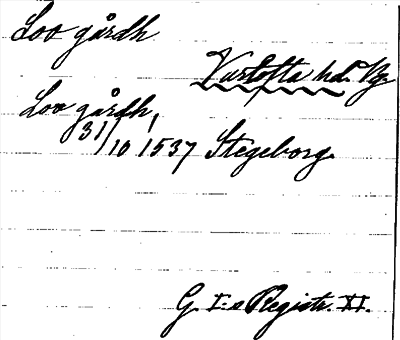 Loo gårdh.
Vartofta hd. Vg.
Loo gårdh,
31/10 1537 Stegeborg.
G. I:s Registr. XI.